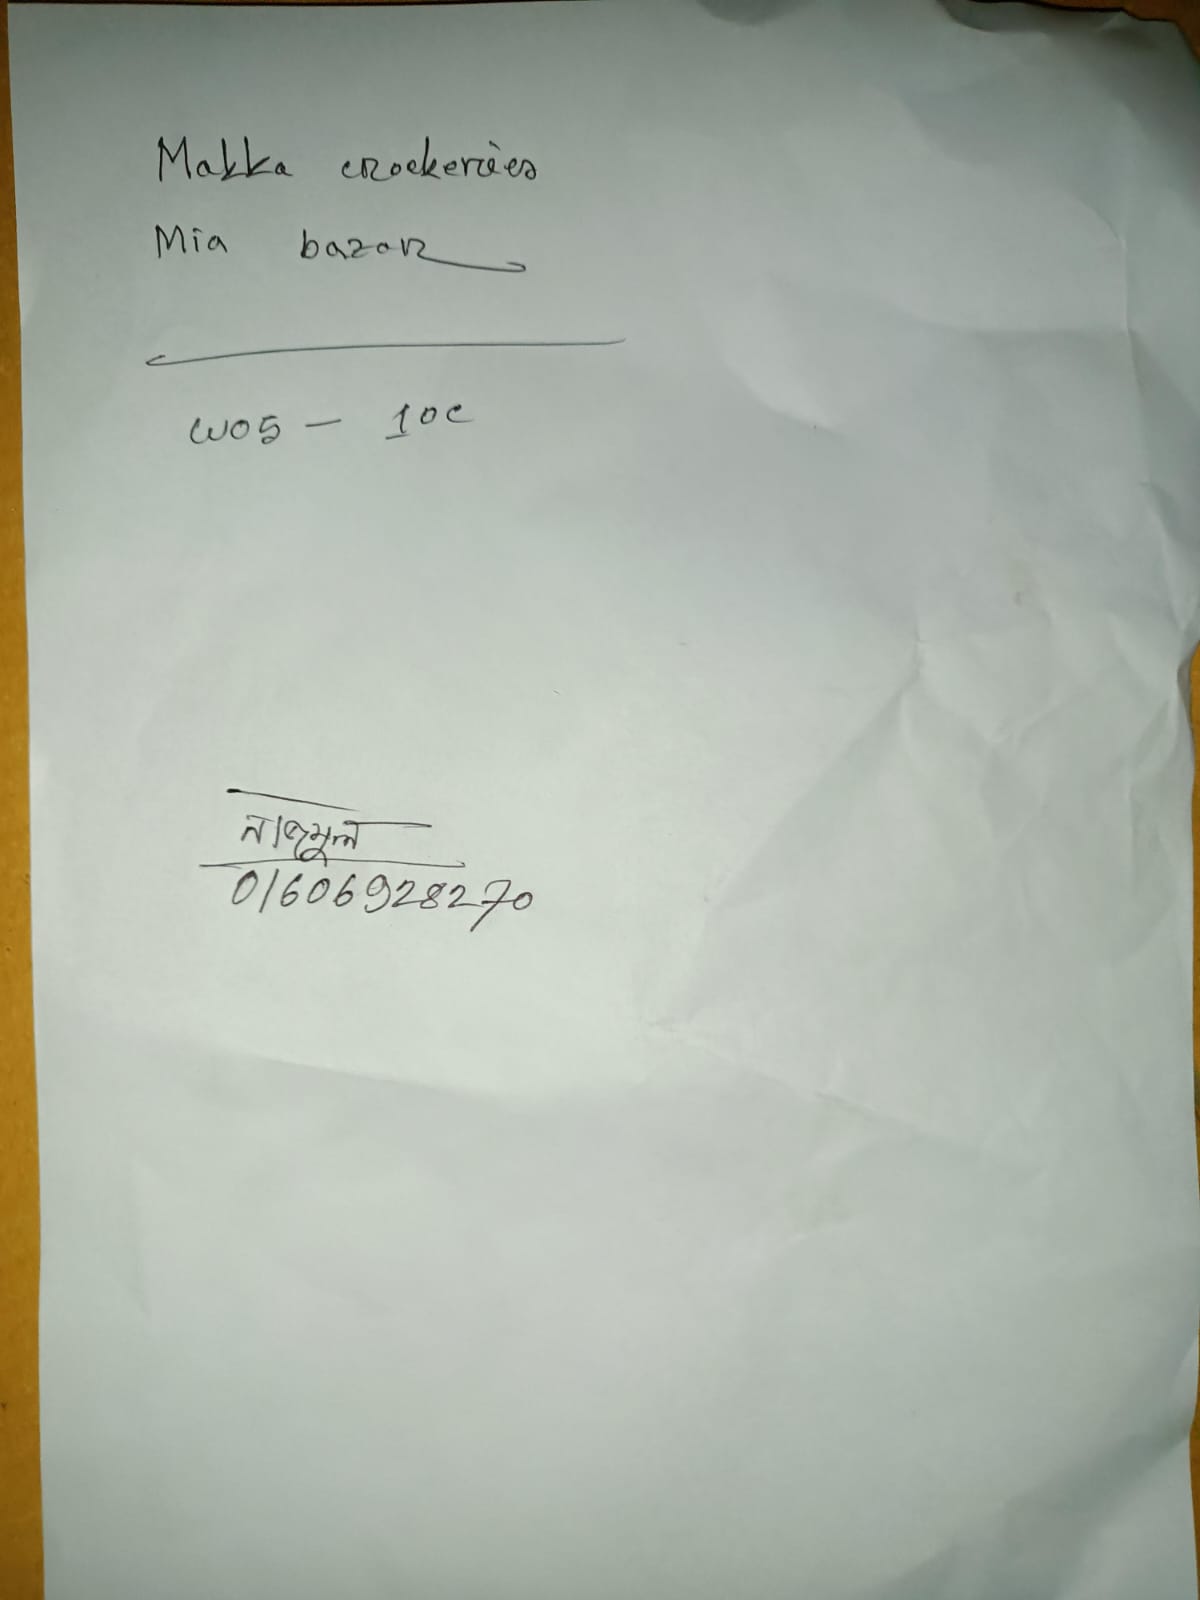 Makka crockeries
Mia bazar
W05 - 10c
নাজমুল
01606928270